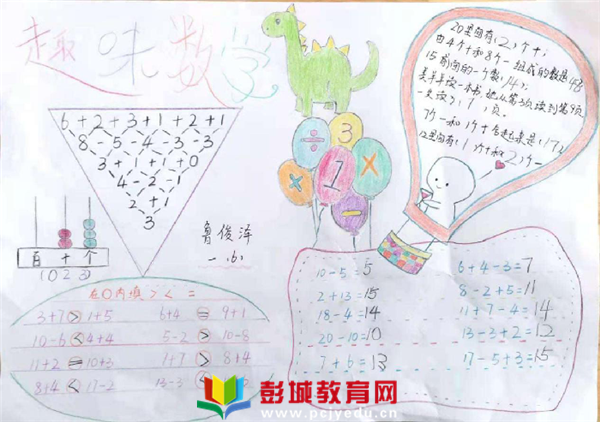 趣味数学
20里面有(2)个十;
由4个十和8个一组成的数是48
15前面的一个数(14);
一共读了(7)页。
12里面有(1)个十和(2)个一
6+2+3+1+2+1
8-5-4-3-3
3+1+1+0
4-2-1
2+1
3
÷
3
×
1
×
-
百 十 个
(0 2 3)
鲁俊泽
一.(6)
在○内填>< =
3+7>1+5
6+4=9+1
10-6<4+4
5-2>10-8
11+2=10+3
1+7>8+4
8+4<17-2
10-5=5
6+4-3=7
2+13=15
8-2+5=11
18-4=14
11+7-4=14
20-10=10
13-3+2=12
7+6=13
17-5+3=15
彭城教育网
www.pcjyedu.cn